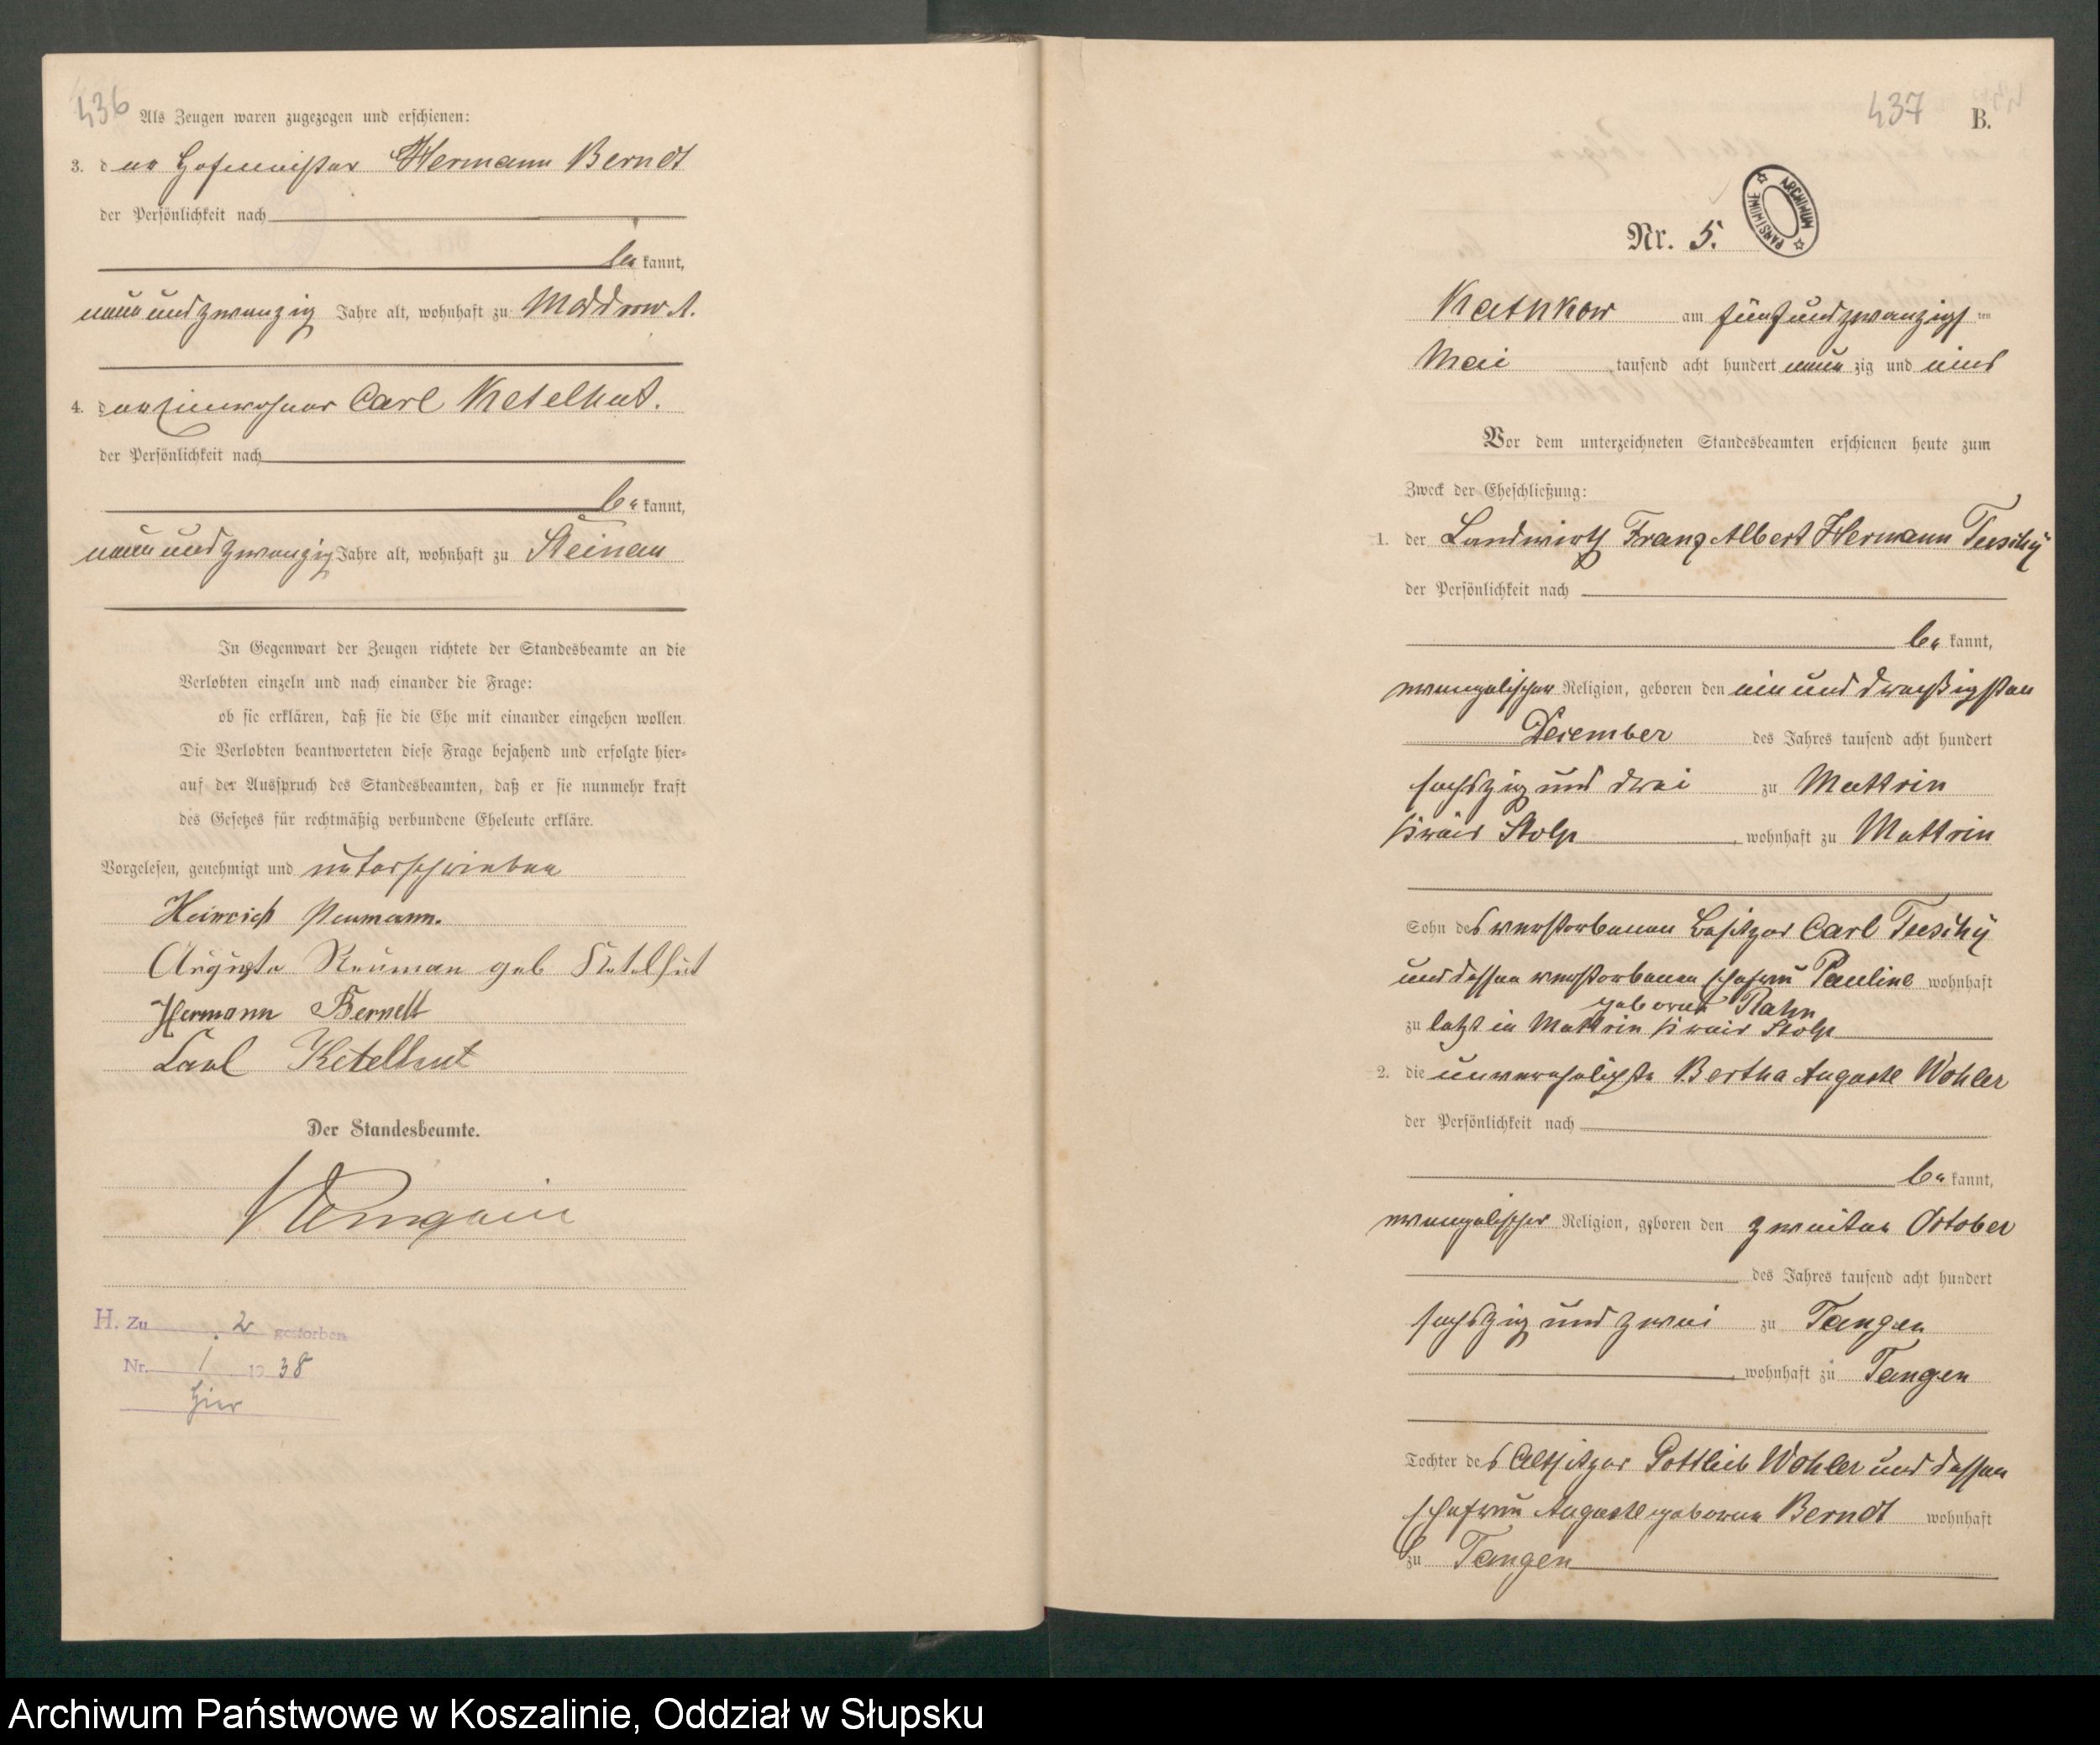 436
Als Zeugen waren zugezogen und erschienen:
3. der Hofmeister Hermann Berndt
der Persönlichkeit nach
be kannt,
neun und zwanzig Jahre alt, wohnhaft zu Moddrow A.
4. der Einwohner Carl Ketelhut.
der Persönlichkeit nach
be kannt,
neun und zwanzig Jahre alt, wohnhaft zu Steinau
In Gegenwart der Zeugen richtete der Standesbeamte an die
Verlobten einzeln und nach einander die Frage:
ob sie erklären, daß sie die Ehe mit einander eingehen wollen.
Die Verlobten beantworteten diese Frage bejahend und erfolgte hier-
auf der Ausspruch des Standesbeamten, daß er sie nunmehr kraft
des Gesetzes für rechtmäßig verbundene Eheleute erkläre.
Vorgelesen, genehmigt und unterschrieben
Heinrich Neumann.
Auguste Neuman geb Ketelhut
Hermann Berndt
Carl Ketelhut
Der Standesbeamte.
H. Zu 2 gestorben
Nr. 1 1938
hier
437
B.
ARCHIWUM PAŃSTWOWE
Nr. 5.
Kathkow am fünf und zwanzigs ten
Mai tausend acht hundert neun zig und eins
Vor dem unterzeichneten Standesbeamten erschienen heute zum
Zweck der Eheschließung:
1. der Landwirth Franz Albert Hermann
der Persönlichkeit nach
be kannt,
evangelischer Religion, geboren den ein und dreißigsten
December des Jahres tausend acht hundert
sechszig und drei zu Muttrin
Kreis Stolp, wohnhaft zu Muttrin
Sohn des verstorbenen Besitzer Carl
und dessen verstorbenen Ehefrau Pauline wohnhaft
geborene Rahn
zu letzt in Muttrin Kreis Stolp
2. die unverehelichte Bertha Auguste Wohler
der Persönlichkeit nach
be kannt,
evangelischer Religion, geboren den zweiten October
des Jahres tausend acht hundert
sechszig und zwei zu Tangen
, wohnhaft zu Tangen
Tochter des Altsitzer Gottlieb Wohler und dessen
Ehefrau Auguste geborene Berndt wohnhaft
zu Tangen
Archiwum Państwowe w Koszalinie, Oddział w Słupsku